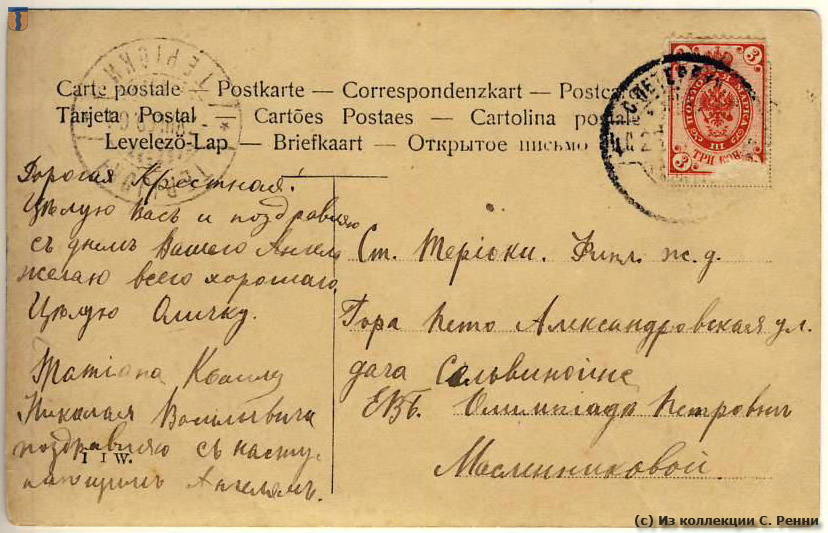 Carte postale — Postkarte — Correspondenzkart — Postca
Tarjeta Postal — Cartões Postaes — Cartolina postale
Levelező-Lap — Briefkaart — Открытое письмо
3 3
МАРКА
III
3 ТРИ КОП. 3
С.ПЕТЕРБУ
ТЕРІОКИ
TERIJOKI
Дорогая Крестная!
Цѣлую Васъ и поздравляю
съ днемъ Вашего Ангела
желаю всего хорошаго.
Цѣлую Оличку.
Татіана
Николая Васильевича
поздравляю съ насту-
пающимъ Ангеломъ.
I I W.
Ст. Теріоки. Финл. ж. д.
Гора Кето Александровская ул.
дача
ЕВБ. Олимпіада Петровнѣ
Масленниковой
(c) Из коллекции С. Ренни